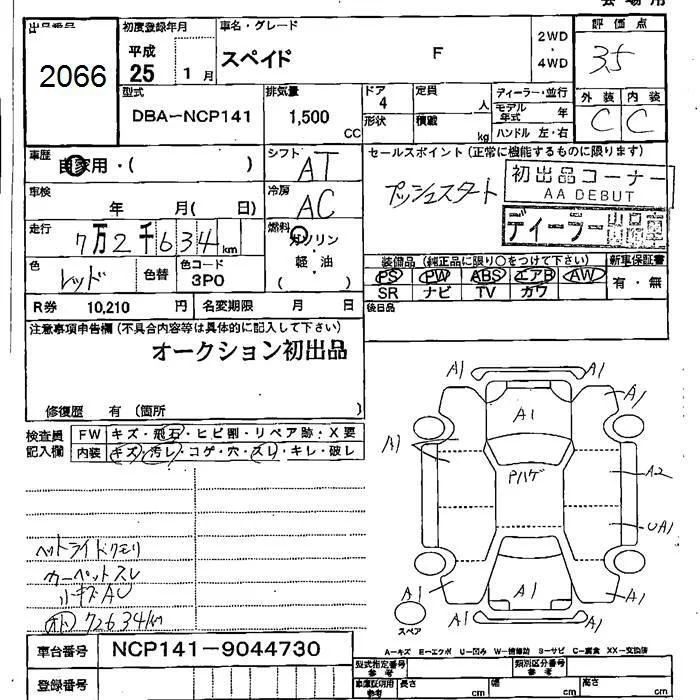 会場用
出品番号
2066
初度登録年月
平成
25 1月
車名・グレード
スペイド F
2WD
・
4WD
評価点
3.5
外装 内装
C C
型式
DBA-NCP141
排気量
1,500
CC
ドア
4
形状
定員
人
積載
kg
ディーラー・並行
モデル年式 年
ハンドル 左・右
車歴
自家用・( )
シフト
AT
セールスポイント(正常に機能するものに限ります)
プッシュスタート
初出品コーナー
AA DEBUT
ディーラー
車検
年 月( 日)
冷房
AC
走行
7万2千634km
燃料
ガソリン
・
軽・油
( )
色
レッド
色替
色コード
3P0
装備品(純正品に限り○をつけて下さい)
PS PW ABS エアB AW
SR ナビ TV カワ
新車保証書
有・無
R券 10,210 円
名変期限 月 日
後日品
注意事項申告欄(不具合内容等は具体的に記入して下さい)
オークション初出品
修復歴 有 (箇所 )
検査員
記入欄
FW キズ・飛石・ヒビ割・リペア跡・X要
内装 キズ・汚レ・コゲ・穴・スレ・キレ・破レ
ヘットライトクモリ
カーペットスレ
小キズAU
72634km
A1
A1
A1
A1
Pハゲ
A2
UA1
A1
A1
A1
スペア
車台番号 NCP141-9044730
A-キズ E-エクボ U-凹み W-補修跡 S-サビ C-腐食 XX-交換済
登録番号
型式指定番号
参考
類別区分番号
参考
車庫証明用
参考
長さ cm
幅 cm
高さ cm